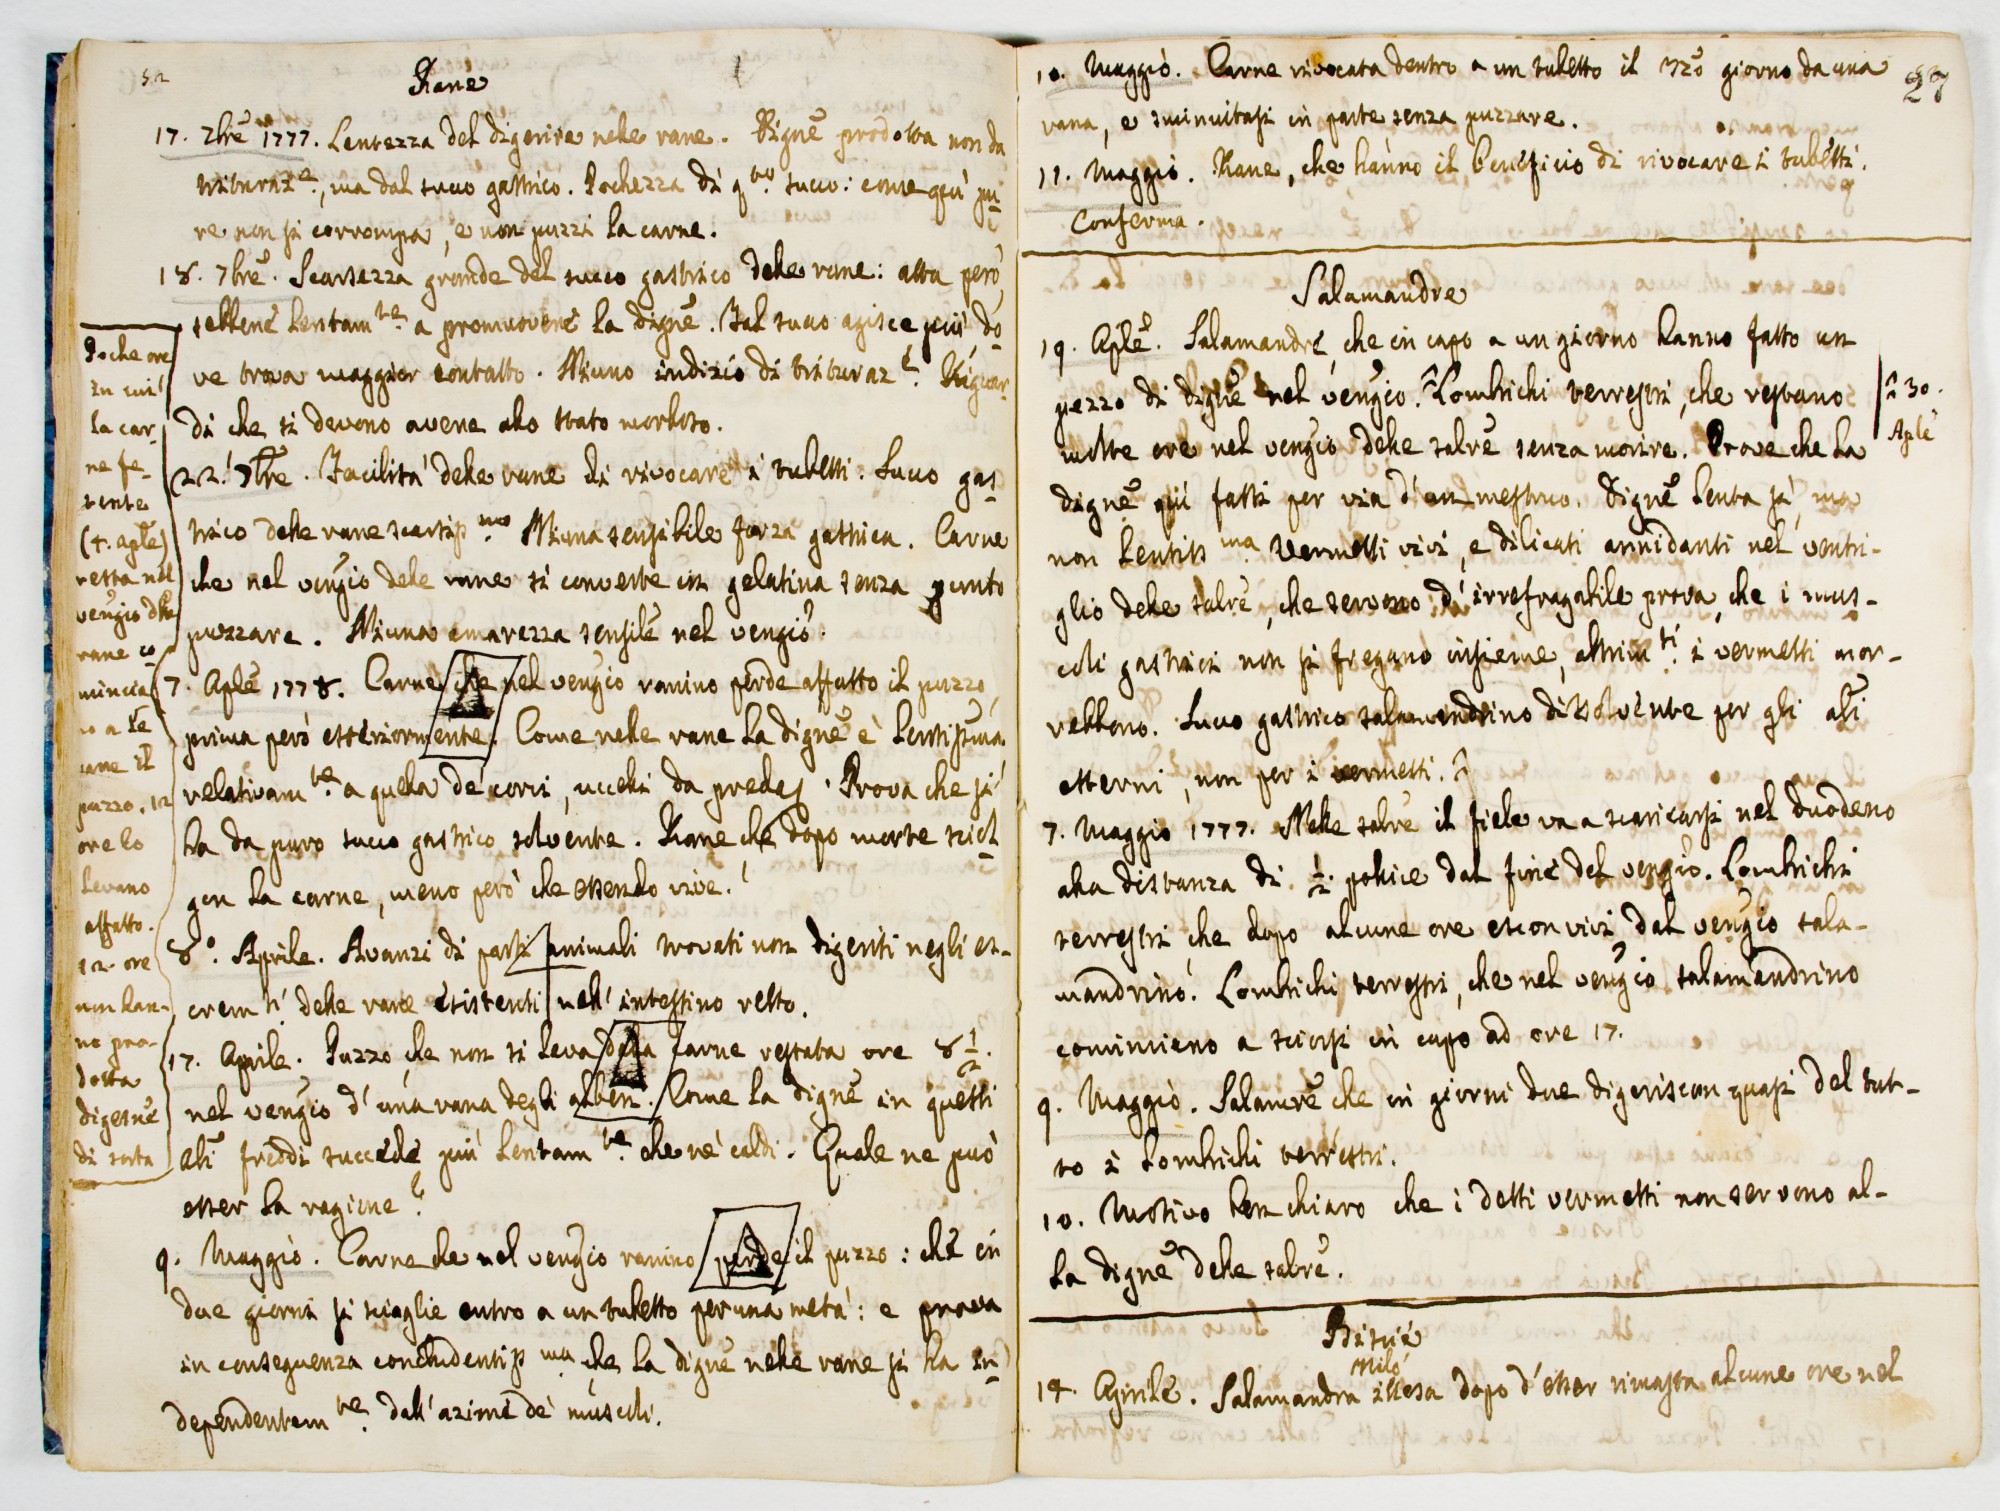 52
Rane
17. 7bre 1777. Lentezza del digerire nelle rane. Digne prodotta non da
trituraze, ma dal succo gastrico. Pochezza di qto succo: come quì pu-
re non si corrompa, e non puzzi la carne.
18. 7bre. Scarsezza grande del succo gastrico delle rane: atta però,
sebbene lentamte a promuovere la digne. Tal succo agisce più, do-
ve trova maggior contatto. Niuno indizio di trituraze. Riguar-
di che si devono avere allo stato morboso.
22. 7bre. Facilità delle rane di rivocare i tubetti. Succo gas-
trico delle rane scarsissmo Niuna sensibile forza gastrica. Carne
che nel vengio delle rane si converte in gelatina senza punto
puzzare. Niuna amarezza sensile nel vengio.
7. Aple 1778. Carne che nel vengio ranino perde affatto il puzzo,
prima però esteriormente. Come nelle rane la digne è lentissima
relativamte a quella de' corvi, uccelli da preda. Prova che si
ha da puro succo gastrico solvente. Rane che dopo morte sciol-
gon la carne, meno però che essendo vive.
8°. Aprile. Avanzi di parti animali trovati non digeriti negli es-
cremti delle rane esistenti nell' intestino retto.
17. Aprile. Puzzo, che non si leva dalla carne restata ore 8 1/2.
nel vengio d' una rana degli alberi. Come la digne in questi
ali freddi succede più lentamte che ne' caldi. Quale ne può
esser la ragione?
9. Maggio. Carne che nel vengio ranino perde il puzzo: che in
due giorni si scioglie entro a un tubetto per una metà: e prova
in conseguenza concludentissma che la digne nelle rane si ha in-
dependentemte dall' azione de' muscoli.
Poche ore
in cui
la car-
ne fe-
tente
(4. aple)
resta nel
vengio dlle
rane co-
mincia-
no a le-
vare il
puzzo. 12
ore lo
levano
affatto.
12 ore
non han-
no pro-
dotta
digesne
di sorta
27
10. Maggio. Carne rivocata dentro a un tubetto il 3zo giorno da una
rana, e sminuitasi in parte senza puzzare.
11. Maggio. Rane, che hanno il beneficio di rivocare i tubetti.
Conferma.
Salamandre
19. Aple. Salamandre, che in capo a un giorno hanno fatto un
pezzo di digne nel vengio. Lombrichi terrestri, che restano
molte ore nel vengio delle salre senza morire. Prove che la
digne quì fassi per via d' un mestruo. Digne lenta sì, ma
non lentissma Vermetti vivi, e dilicati annidanti nel ventri-
glio delle salre, che servono d' irrefragabile prova, che i mus-
coli gastrici non si fregano insieme, altrimti i vermetti mor-
rebbono. Succo gastrico salamandrino dissolvente per gli ali
esterni, non per i vermetti.
30.
Aple
7. Maggio 1777. Nelle salre il fiele va a scaricarsi nel duodeno
alla distanza di 1/2 pollice dal fine del vengio. Lombrichi
terrestri, che dopo alcune ore escon vivi dal vengio sala-
mandrino. Lombrichi terrestri, che nel vengio salamandrino
cominciano a sciorsi in capo ad ore 17.
9. Maggio. Salamre che in giorni due digeriscon quasi del tut-
to i lombrichi terrestri.
10. Motivo ben chiaro che i detti vermetti non servono al-
la digne delle salre.
Biscie
14. Aprile. Salamandra illesa dopo d' esser rimasta alcune ore nel